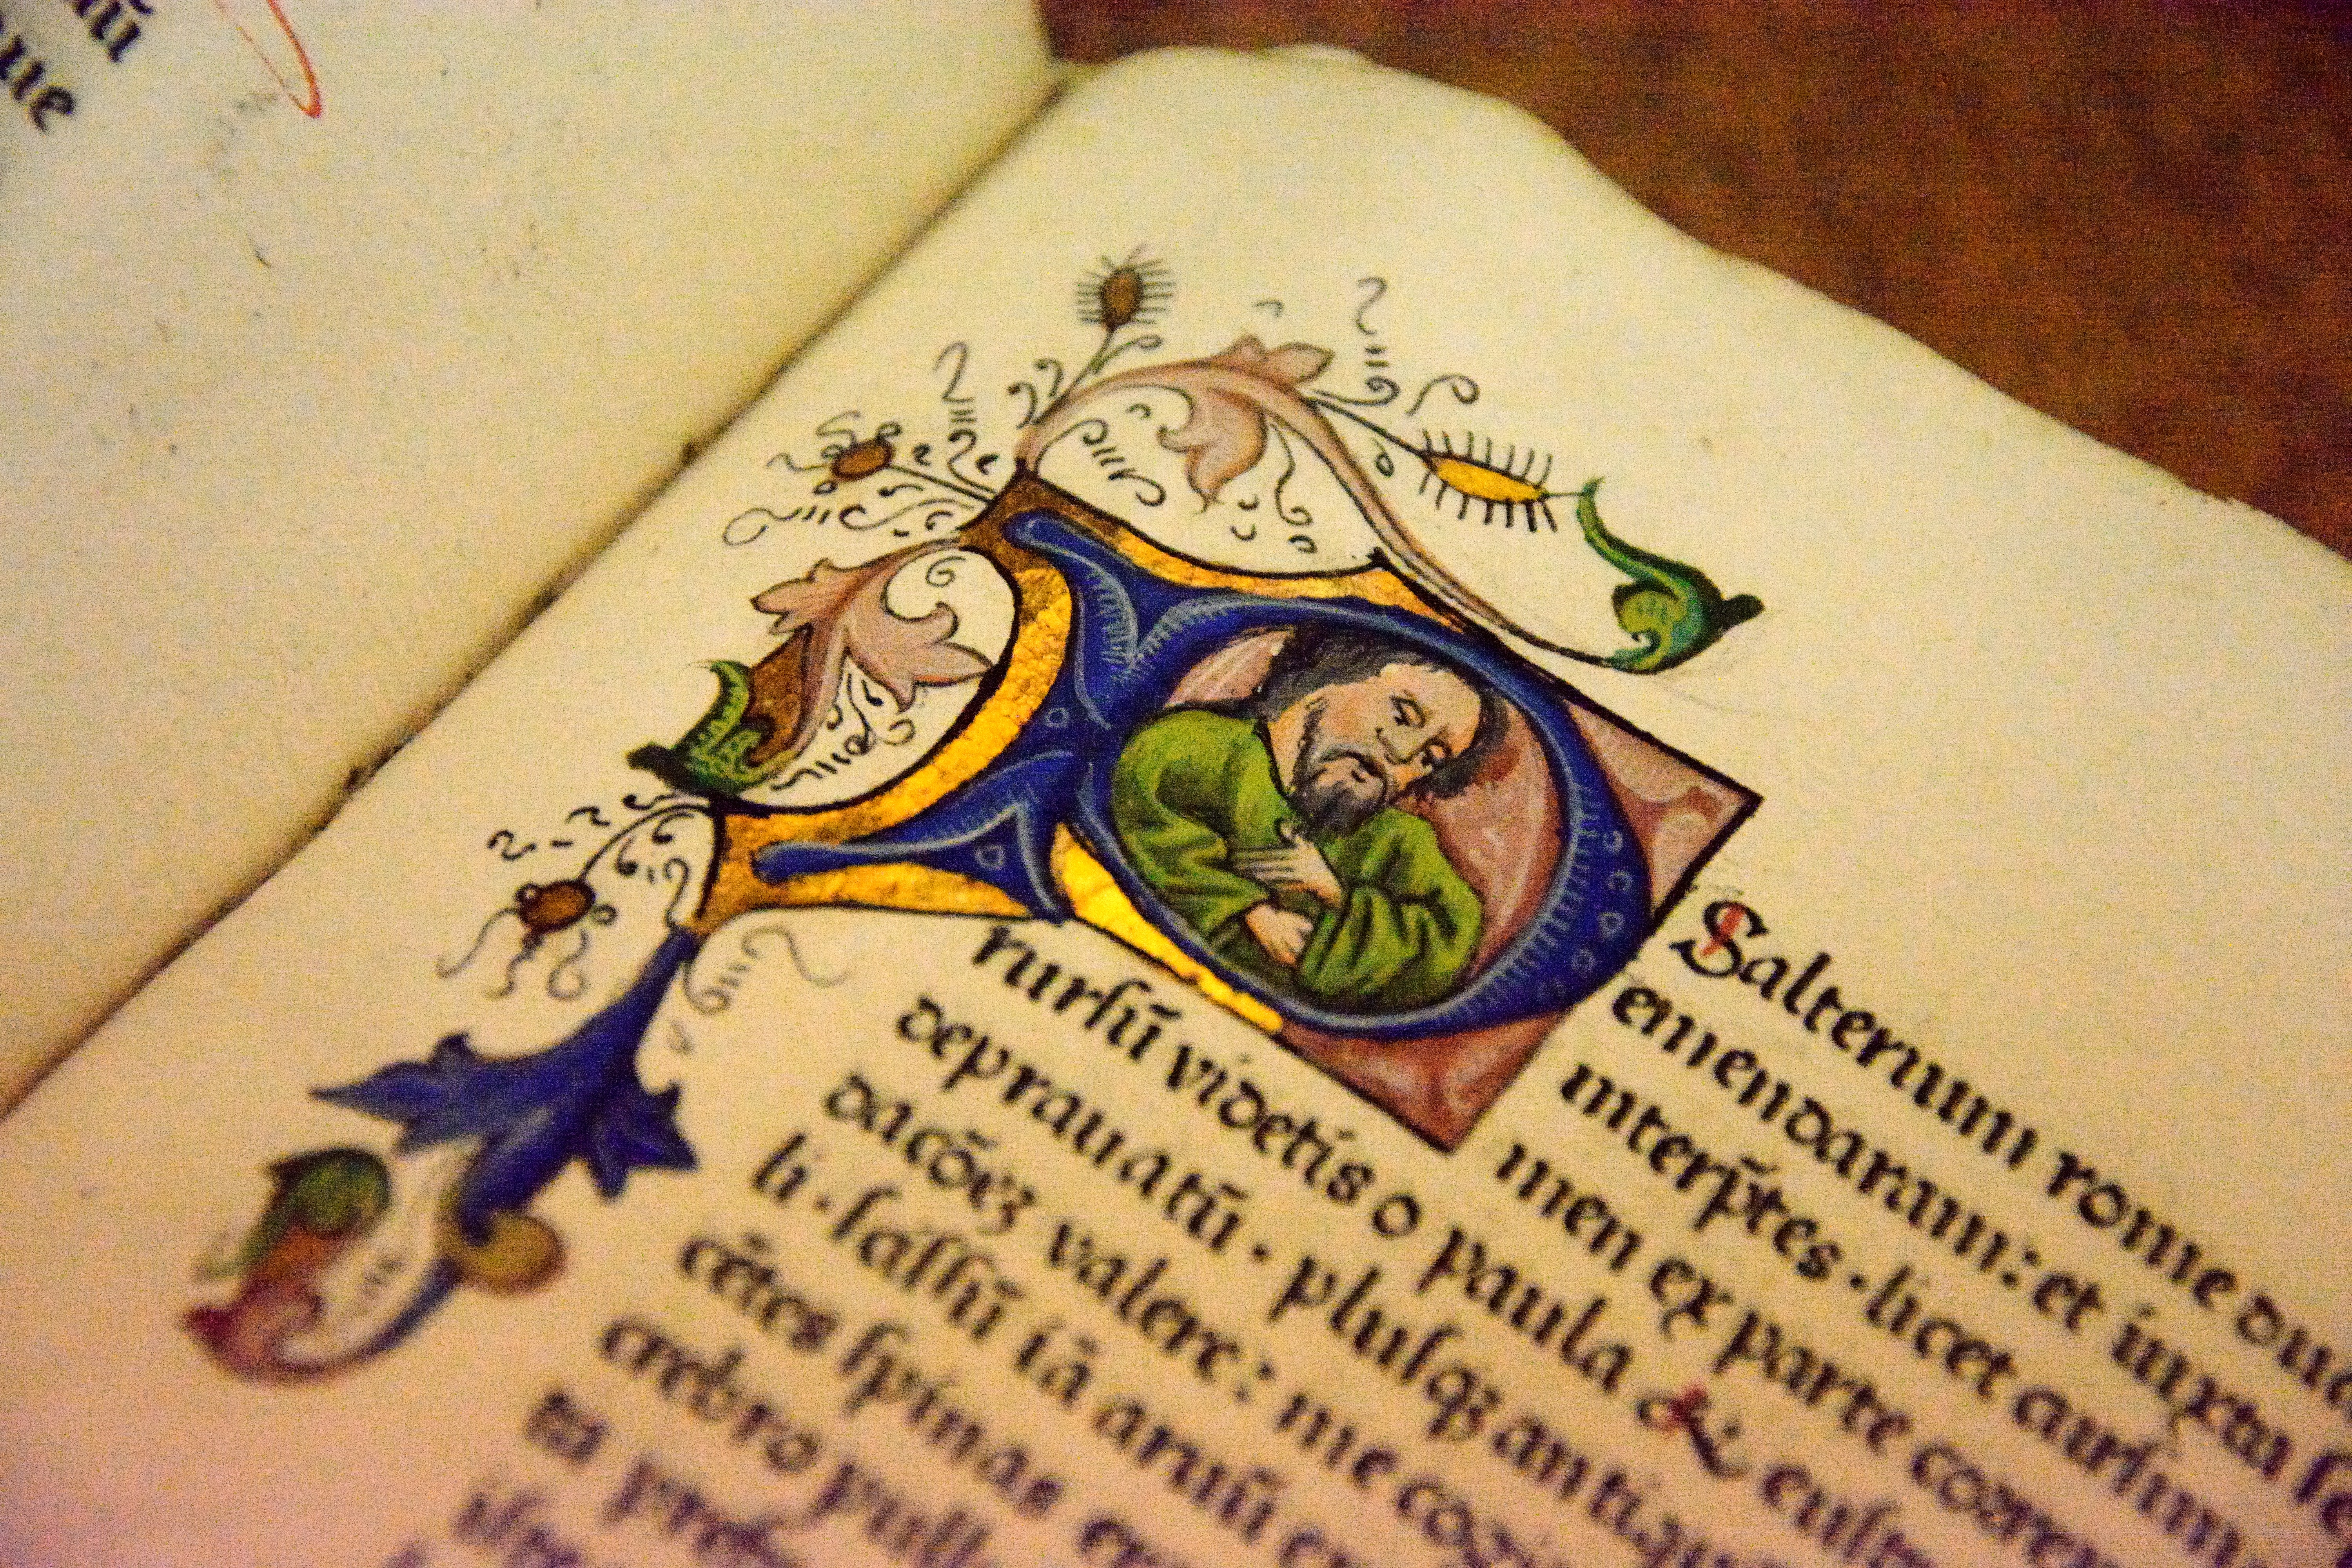 PSalterium rome dud
emendaram: et iuxta ſe
interp̄tes · licet curſim
men ex parte correx
rurſū videtis o paula &
deprauatū · pluſqꝫ antiqu
dacōeꝫ valere: me cog
li · ſaſſū iā aruū
cētes ſpinas
crebro pull